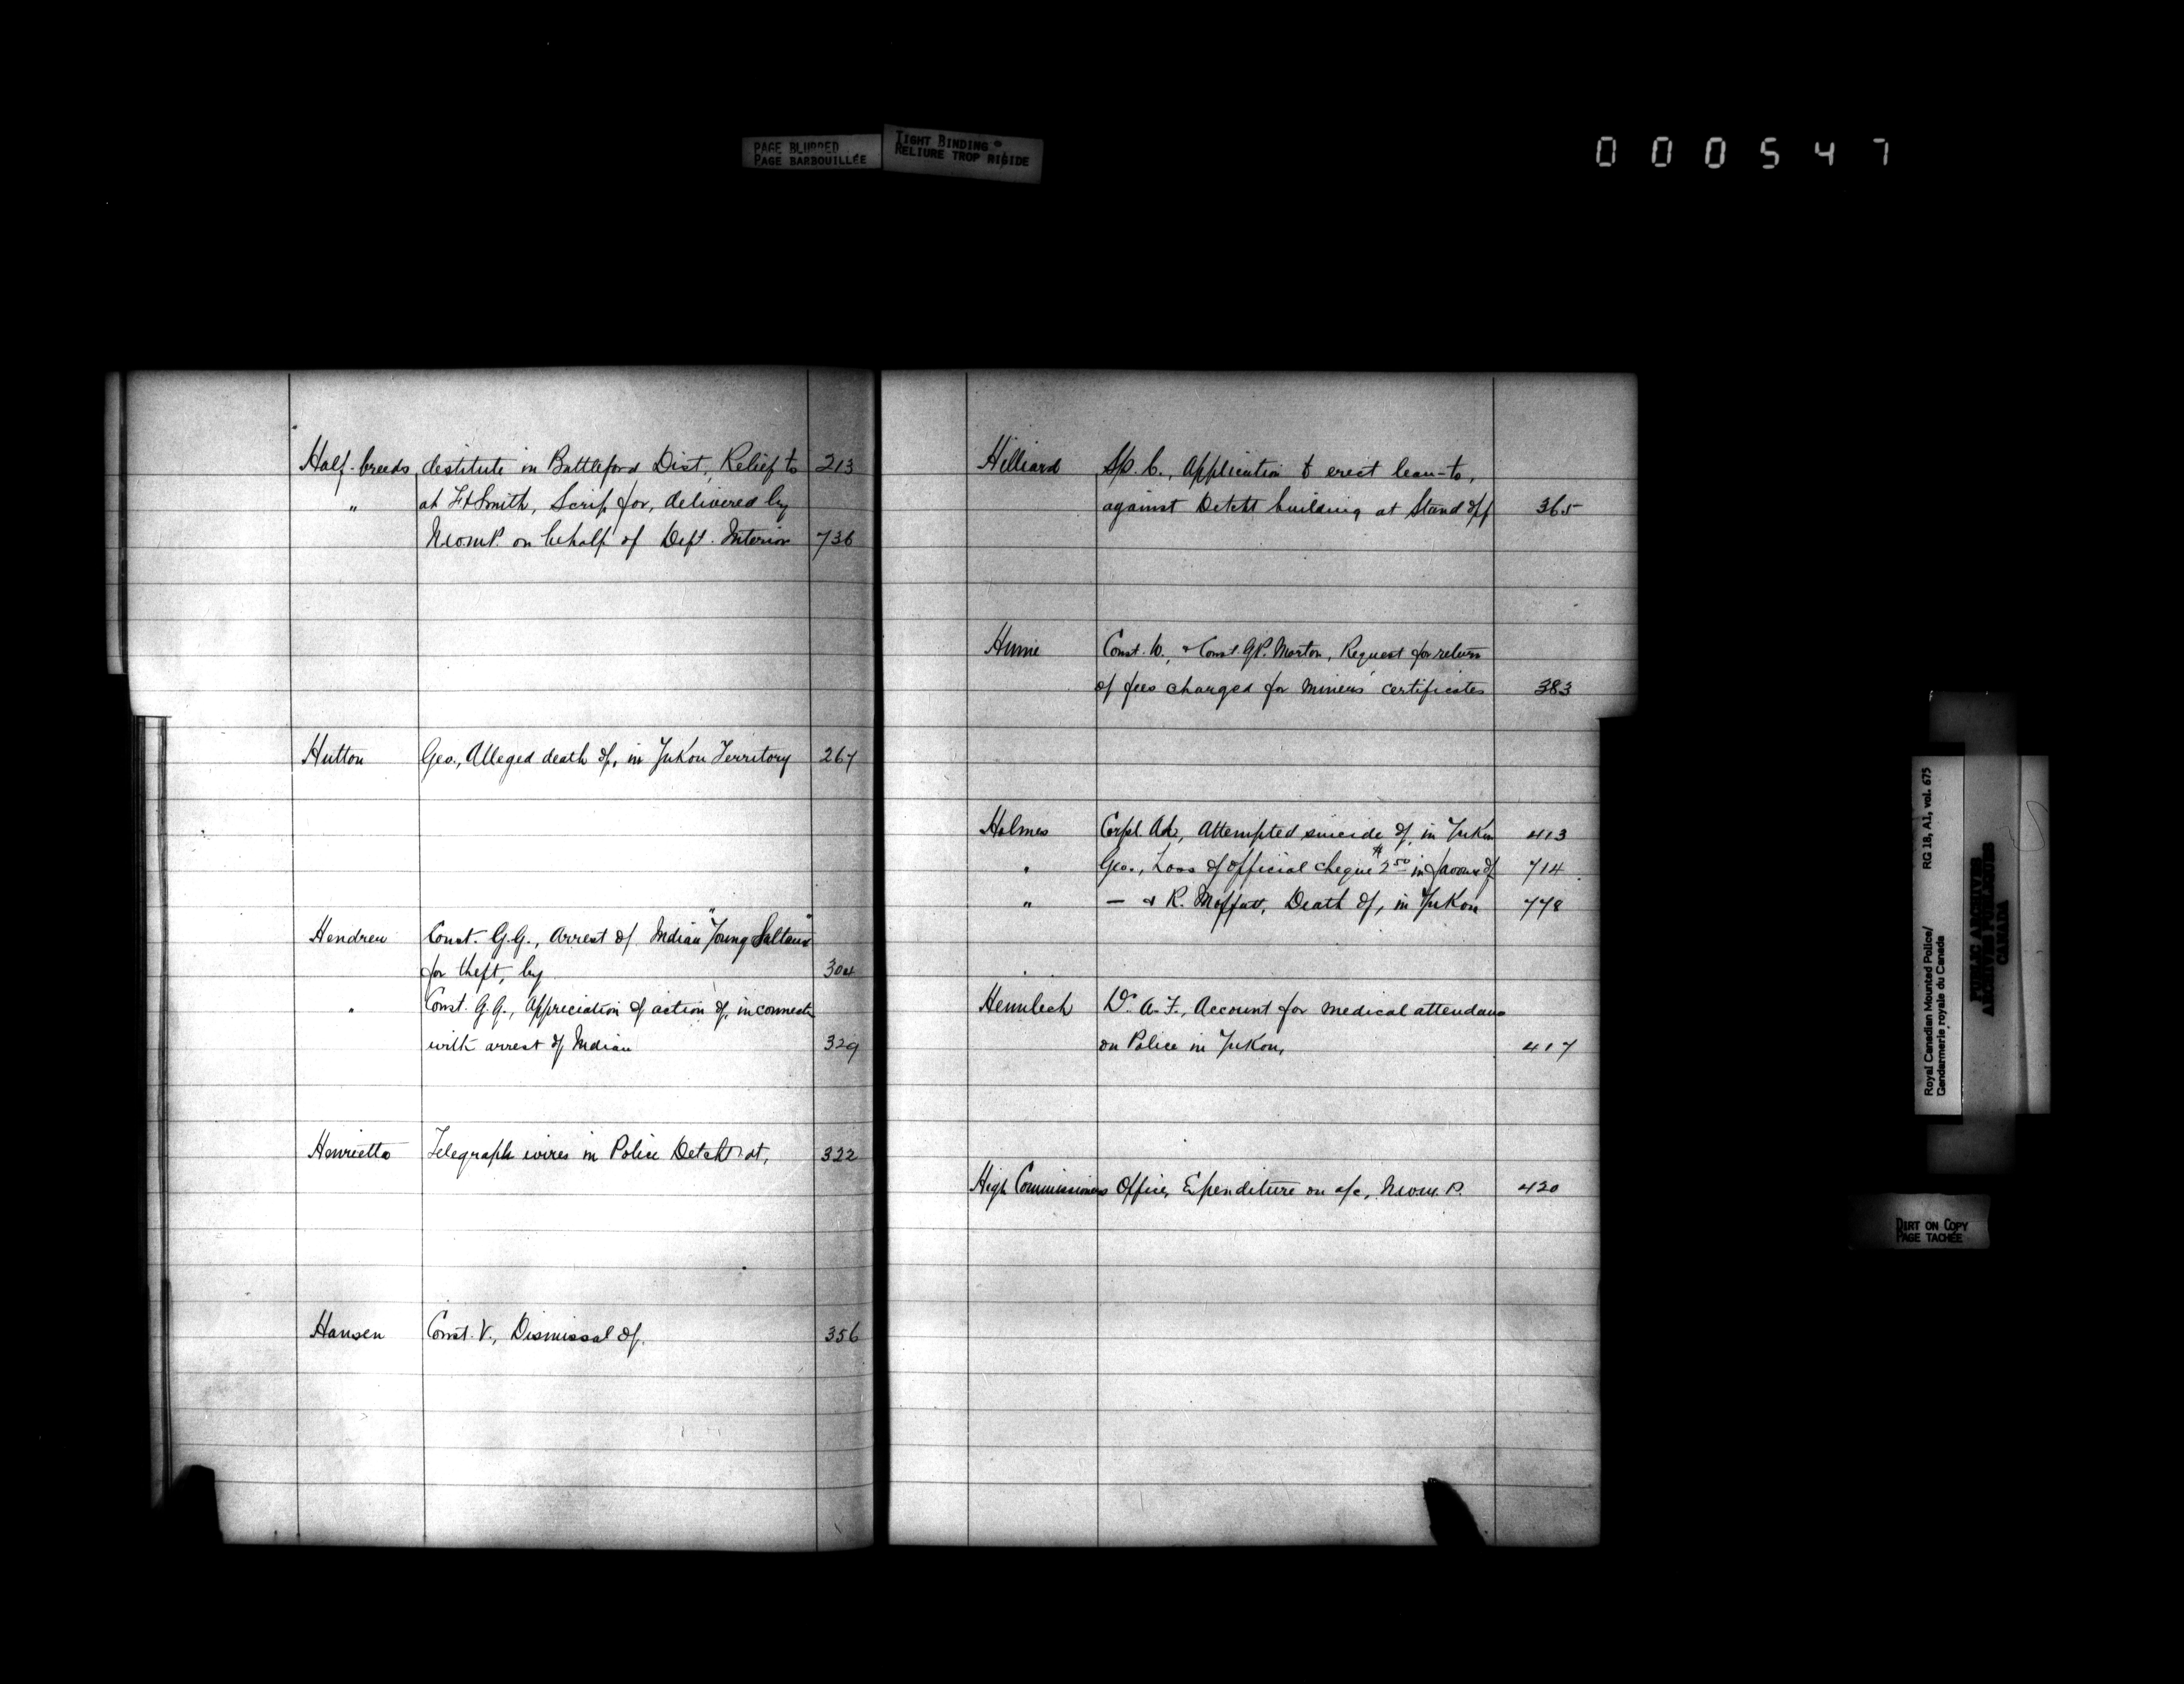 PAGE BLURRED
PAGE BARBOUILLÉE
TIGHT BINDING
RELIURE TROP RIGIDE
000547
Half-breeds, destitute in Battleford Dist, Relief to 213
" at Ft Smith, Scrip for, delivered by
N.W.M.P. on behalf of Dept. Interior 736
Hutton Geo., Alleged death of, in Yukon Territory 267
Hendren Const. G.G., Arrest of Indian "Young
for theft, by 304
" Const. G.G., Appreciation of action of, in connect
with arrest of Indian 329
Henrietta Telegraph wires in Police Detcht at, 322
Hansen Const. V., Dismissal of. 356
Hilliard Sp. C., Application to erect lean-to,
against Detcht building at Stand off 365
Hume Const. W., & Const. G.P. Morton, Request for return
of fees charged for miners' certificates 383
Holmes Corpl. Ad., Attempted suicide of, in Yukon 413
" Geo., Loss of official cheque $2.50 in favour of 714
" — & R. Moffatt, Death of, in Yukon 778
Dr. A.F., Account for medical attendance
on Police in Yukon, 417
High Commissioners Office, Expenditure on a/c, N.W.M.P. 420
Royal Canadian Mounted Police/ RG 18, A1, vol. 675
Gendarmerie royale du Canada
PUBLIC ARCHIVES
ARCHIVES PUBLIQUES
CANADA
DIRT ON COPY
PAGE TACHÉE